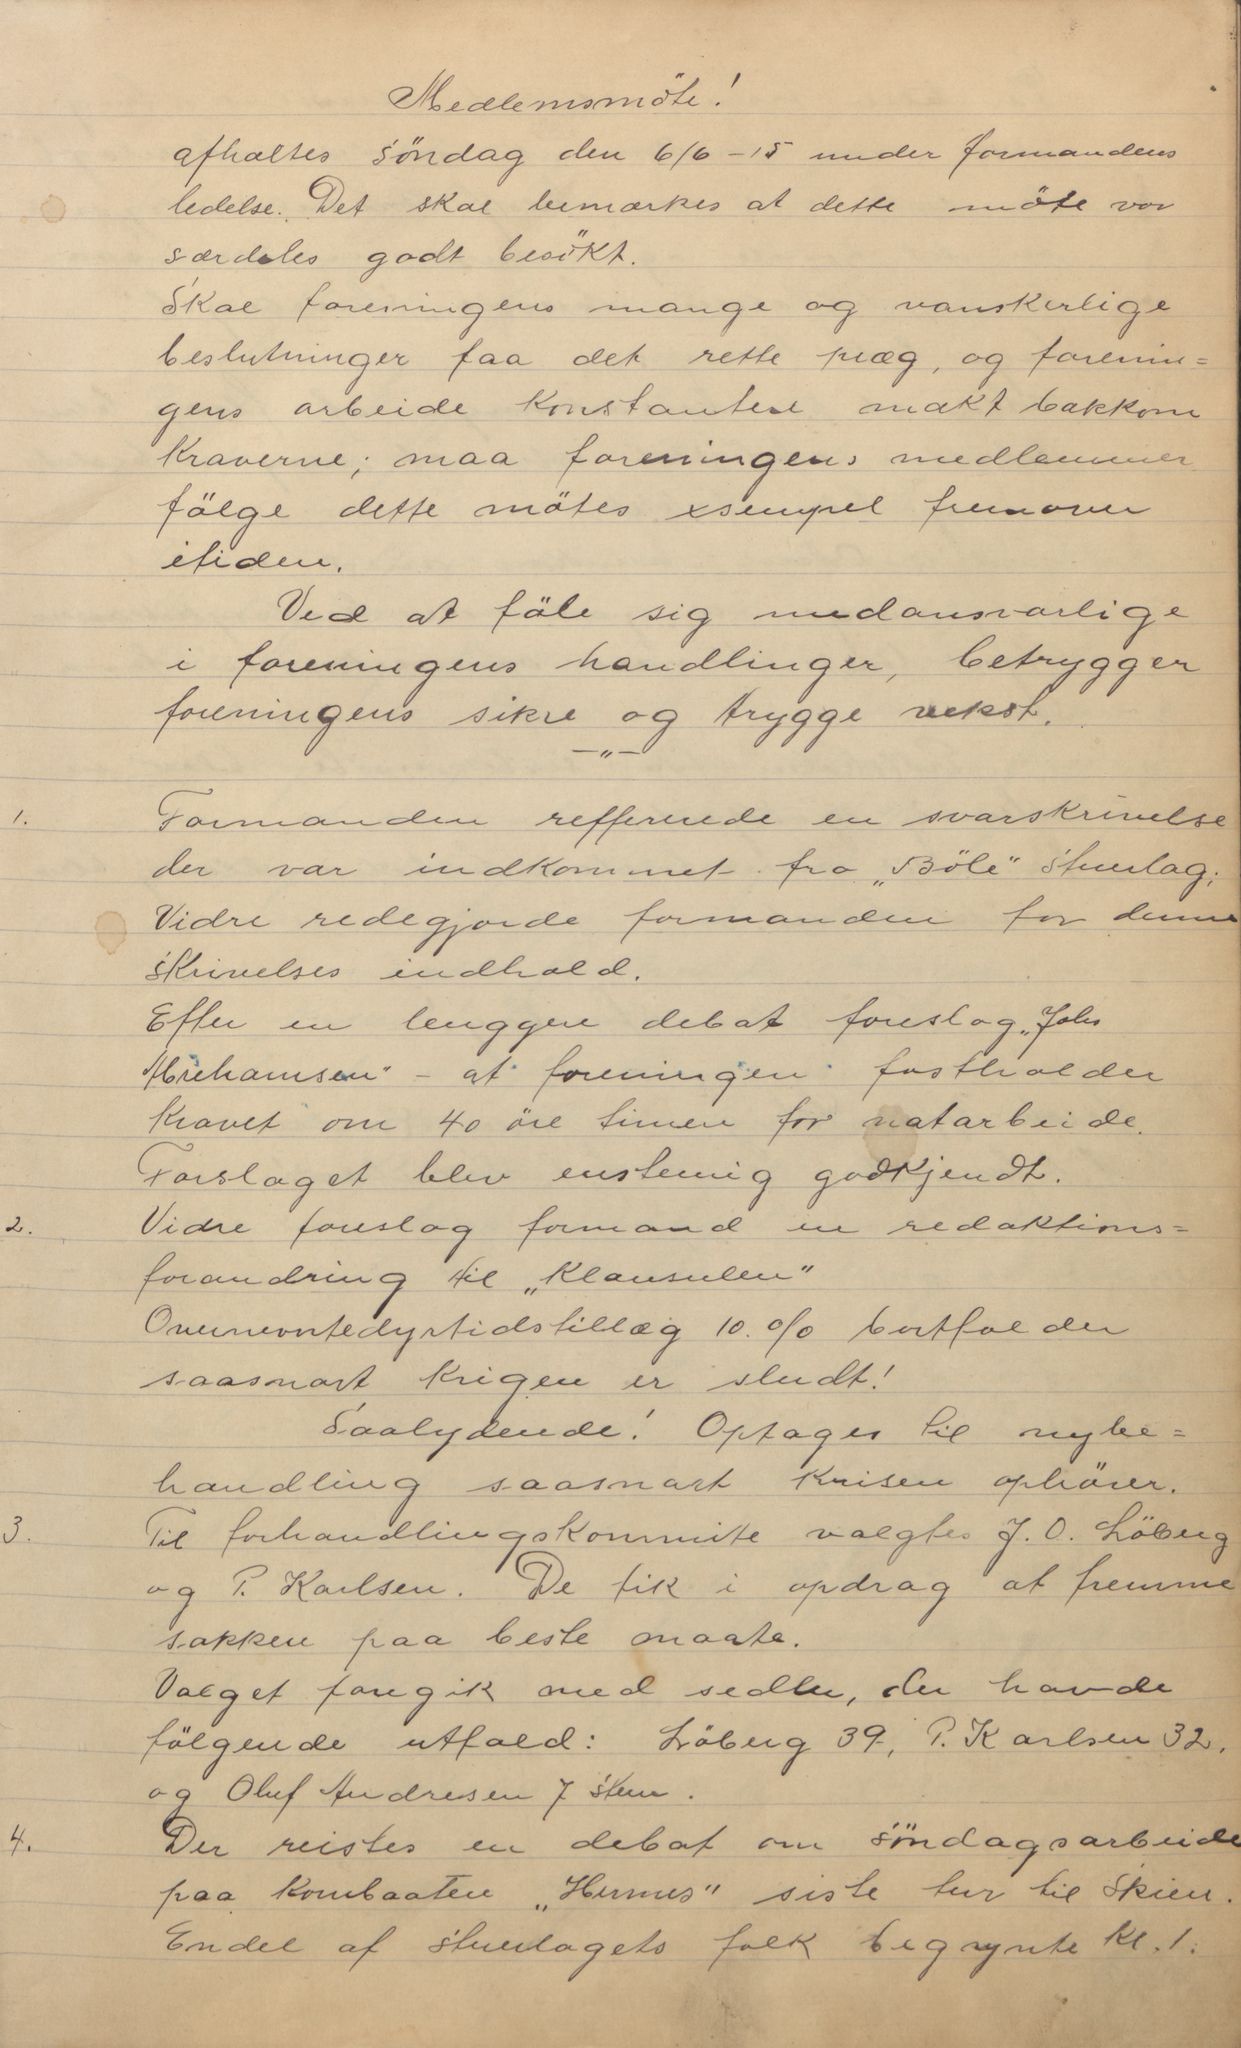 Medlemsmöte!
afholtes söndag den 6/6-15 under formandens
ledelse. Det skal bemærkes at dette möte var
særdeles godt besökt.
Skal foreningens mange og vanskerlige
beslutninger faa det rette præg, og forenin=
gens arbeide konstantere makt bakkom
kraverne; maa foreningens medlemmer
fölge dette mötes exsempel fremover
itiden.
Ved at föle sig medansvarlige
i foreningens handlinger, betrygger
foreningens sikre og trygge vekst.
—"—
1. Formanden reffererede en svarskrivelse
der var indkommet fra „Böle" Stuerlag;
Vidre redegjorde formanden for denne
skrivelses indhold.
Efter en lenggere debat foreslog „Johs
Abrehamsen" - at foreningen fastholder
kravet om 40 öre timen for natarbeide.
Forslaget blev enstemig godkjendt.
2. Vidre foreslog formand en redaktions=
forandring til „Klausulen"
Overnevntedyrtidstillæg 10. o/o bortfalder
saasnart krigen er sludt!
Saalydende! Optages til nybe=
handling saasnart krisen ophörer.
3. Til forhandlingskommite valgtes J. O. Löberg
og P. Karlsen. De fik i opdrag at fremme
sakken paa beste maate.
Valget foregik med sedler, der havde
fölgende utfald: Löberg 39, P. Karlsen 32.
og Oluf Andresen 7 stem.
4. Der reistes en debat om söndagsarbeide
paa kornbaaten „Hermes" siste tur til Skien.
Endel af stuerlagets folk begyynte kl. 1.